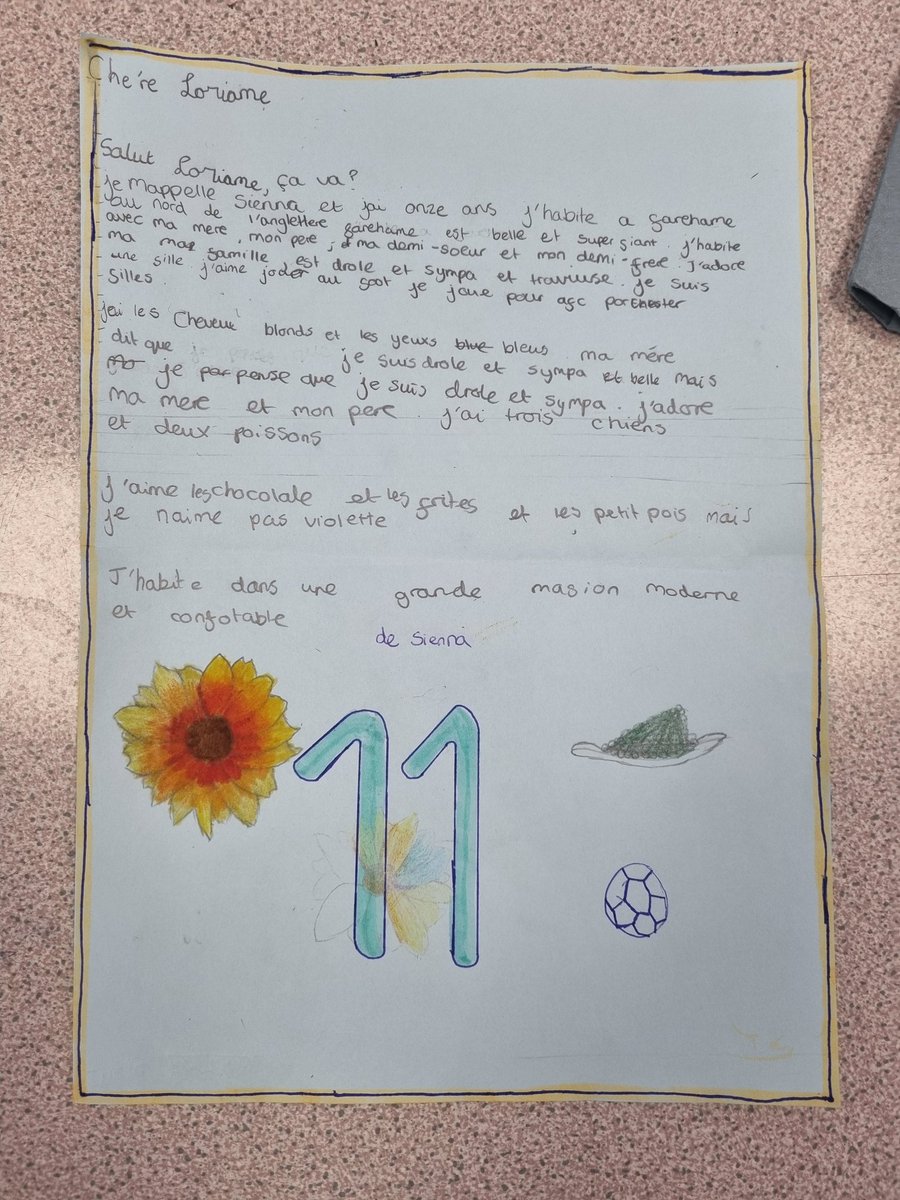 Che're Loriame
Salut Loriame, ça va?
je mappelle Sienna et jai onze ans j'habite a garehame
au nord de l'anglettere garehame est belle et super giant. j'habite
avec ma mere, mon pere, et ma demi-soeur et mon demi-free. J'adore
ma famille est drole et sympa et travuuse. je suis
une fille. j'aime joder au foot je joue pour afc porchester
filles.
jai les Cheveux blonds et les yeux blue bleus. ma mére
dit que je suis drole et sympa et belle mais
je par pense que je suis drole et sympa. j'adore
ma mere et mon pere. j'ai trois chiens
et deux poissons
J'aime les chocolale et les frites et les petit pois mais
je naime pas violette
J'habite dans une grande masion moderne
et confotable
de Sienna
11